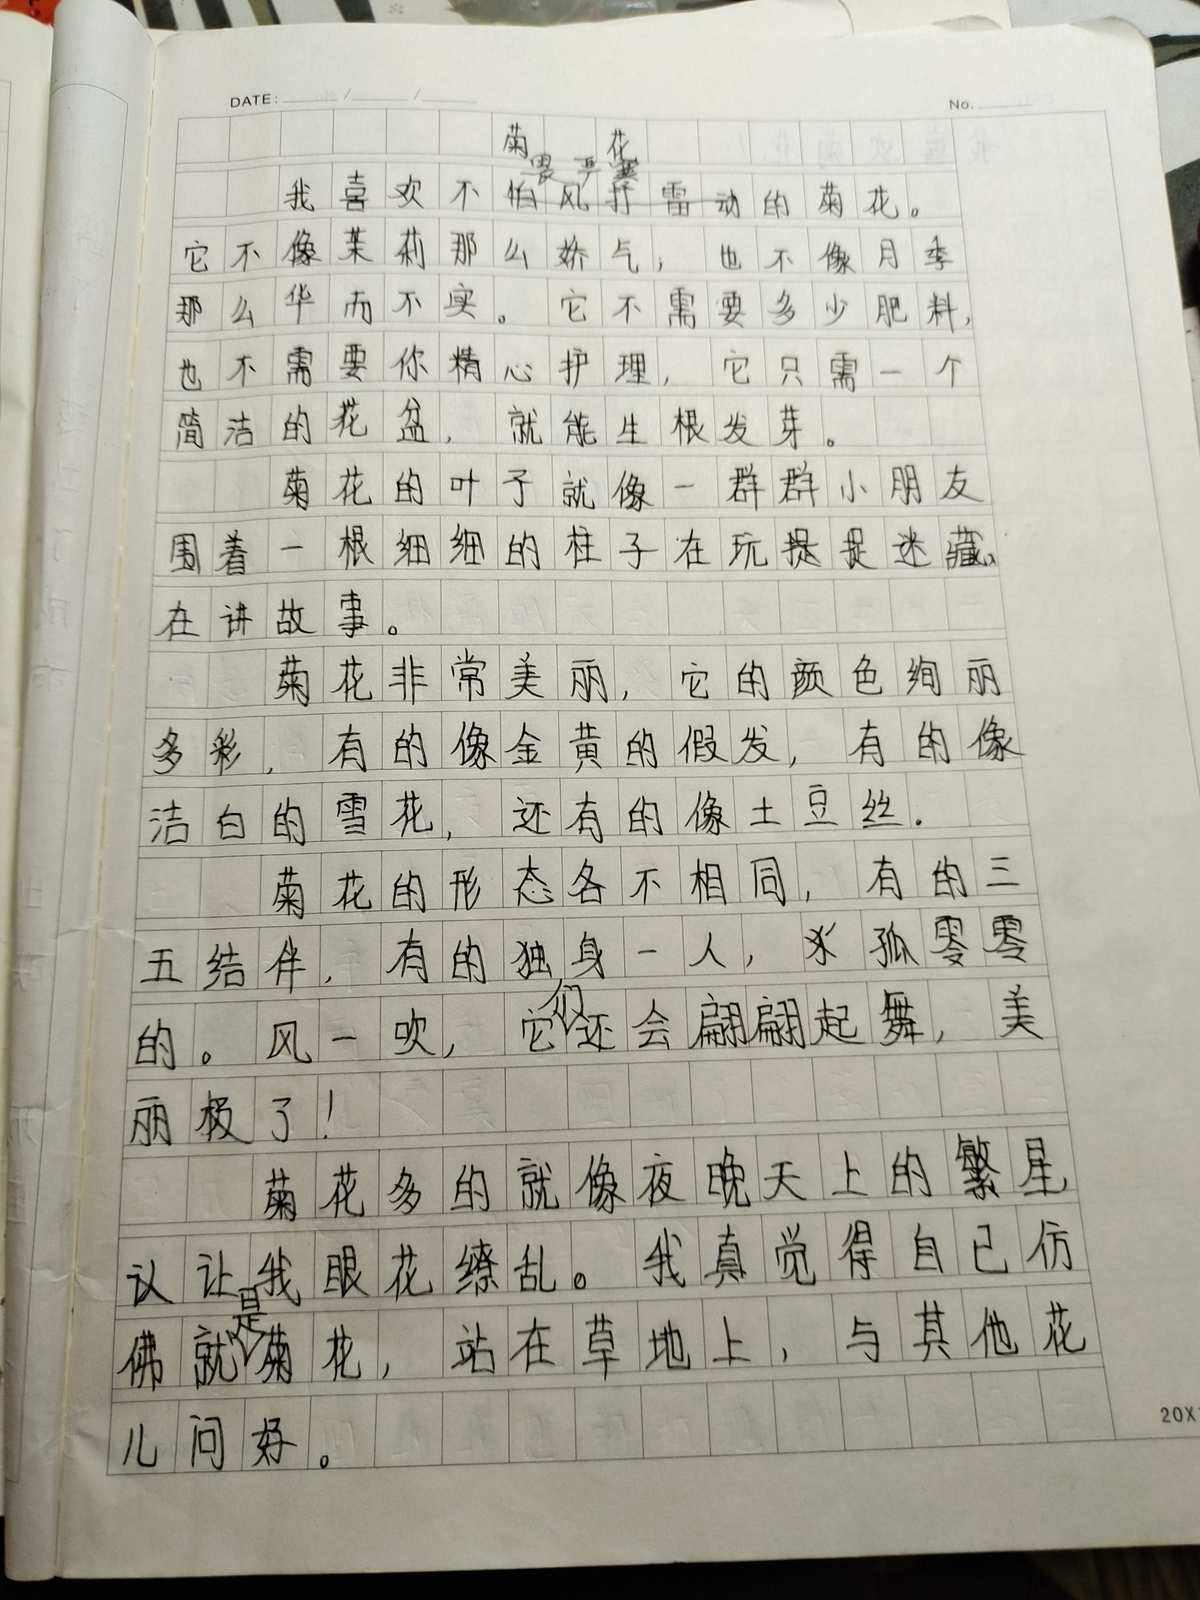 DATE: / /
No.
菊花
畏严寒
我喜欢不怕风打雷动的菊花。
它不像茉莉那么娇气，也不像月季
那么华而不实。它不需要多少肥料，
也不需要你精心护理，它只需一个
简洁的花盆，就能生根发芽。
菊花的叶子就像一群群小朋友
围着一根细细的柱子在玩捉捉迷藏、
在讲故事。
菊花非常美丽，它的颜色绚丽
多彩，有的像金黄的假发，有的像
洁白的雪花，还有的像土豆丝.
菊花的形态各不相同，有的三
五结伴，有的独身一人，孤零零
的。风一吹，它们还会翩翩起舞，美
丽极了！
菊花多的就像夜晚天上的繁星
让我眼花缭乱。我真觉得自己仿
佛就是菊花，站在草地上，与其他花
儿问好。
20X